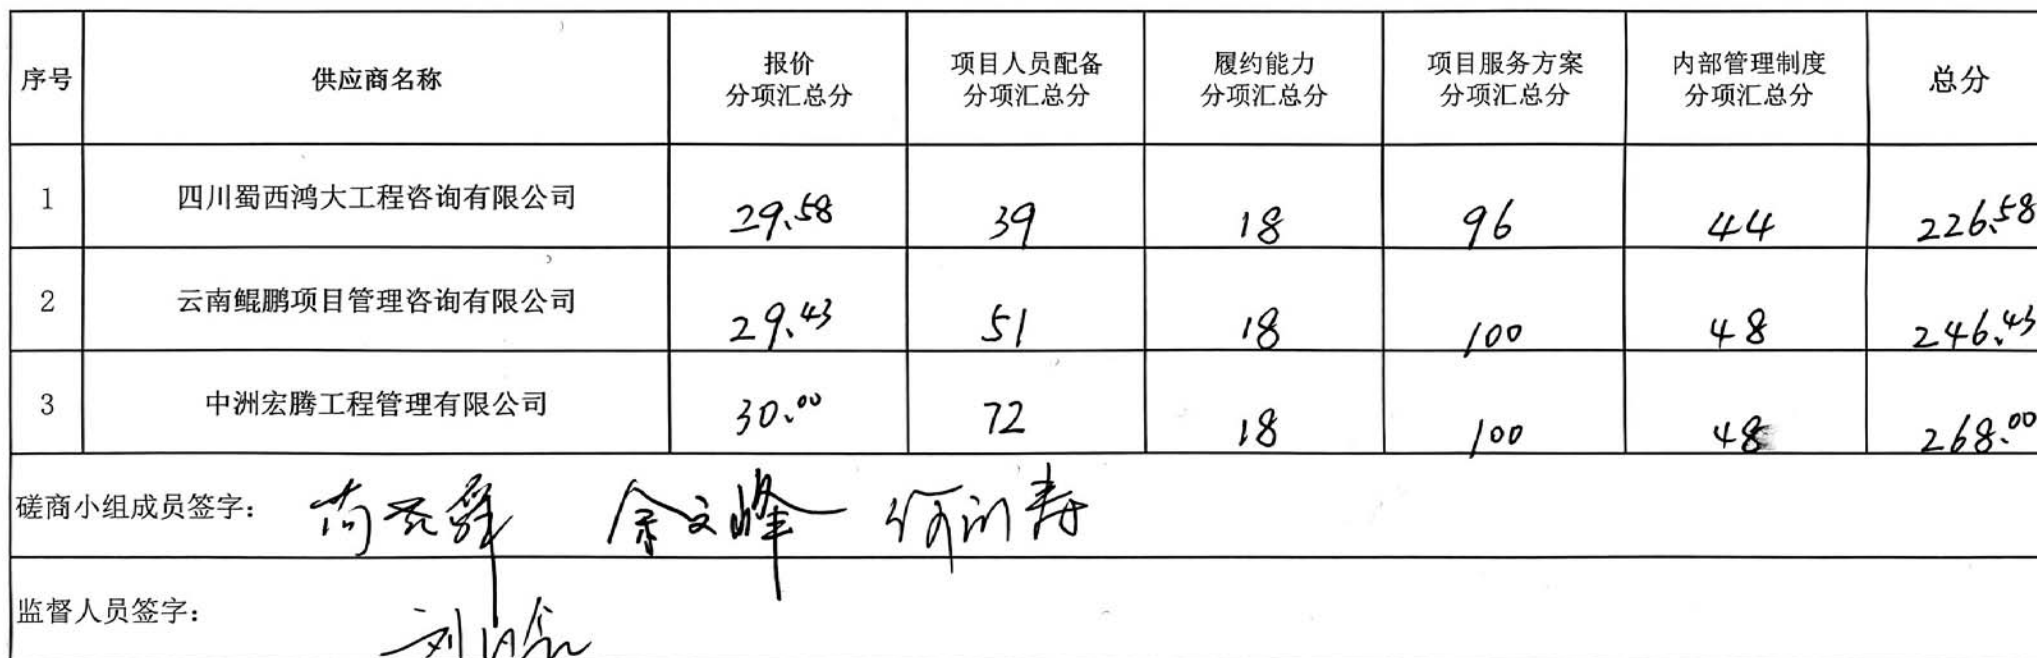 序号 供应商名称 报价分项汇总分 项目人员配备分项汇总分 履约能力分项汇总分 项目服务方案分项汇总分 内部管理制度分项汇总分 总分
1 四川蜀西鸿大工程咨询有限公司 29.58 39 18 96 44 226.58
2 云南鲲鹏项目管理咨询有限公司 29.43 51 18 100 48 246.43
3 中洲宏腾工程管理有限公司 30.00 72 18 100 48 268.00
磋商小组成员签字： 余文峰
监督人员签字：